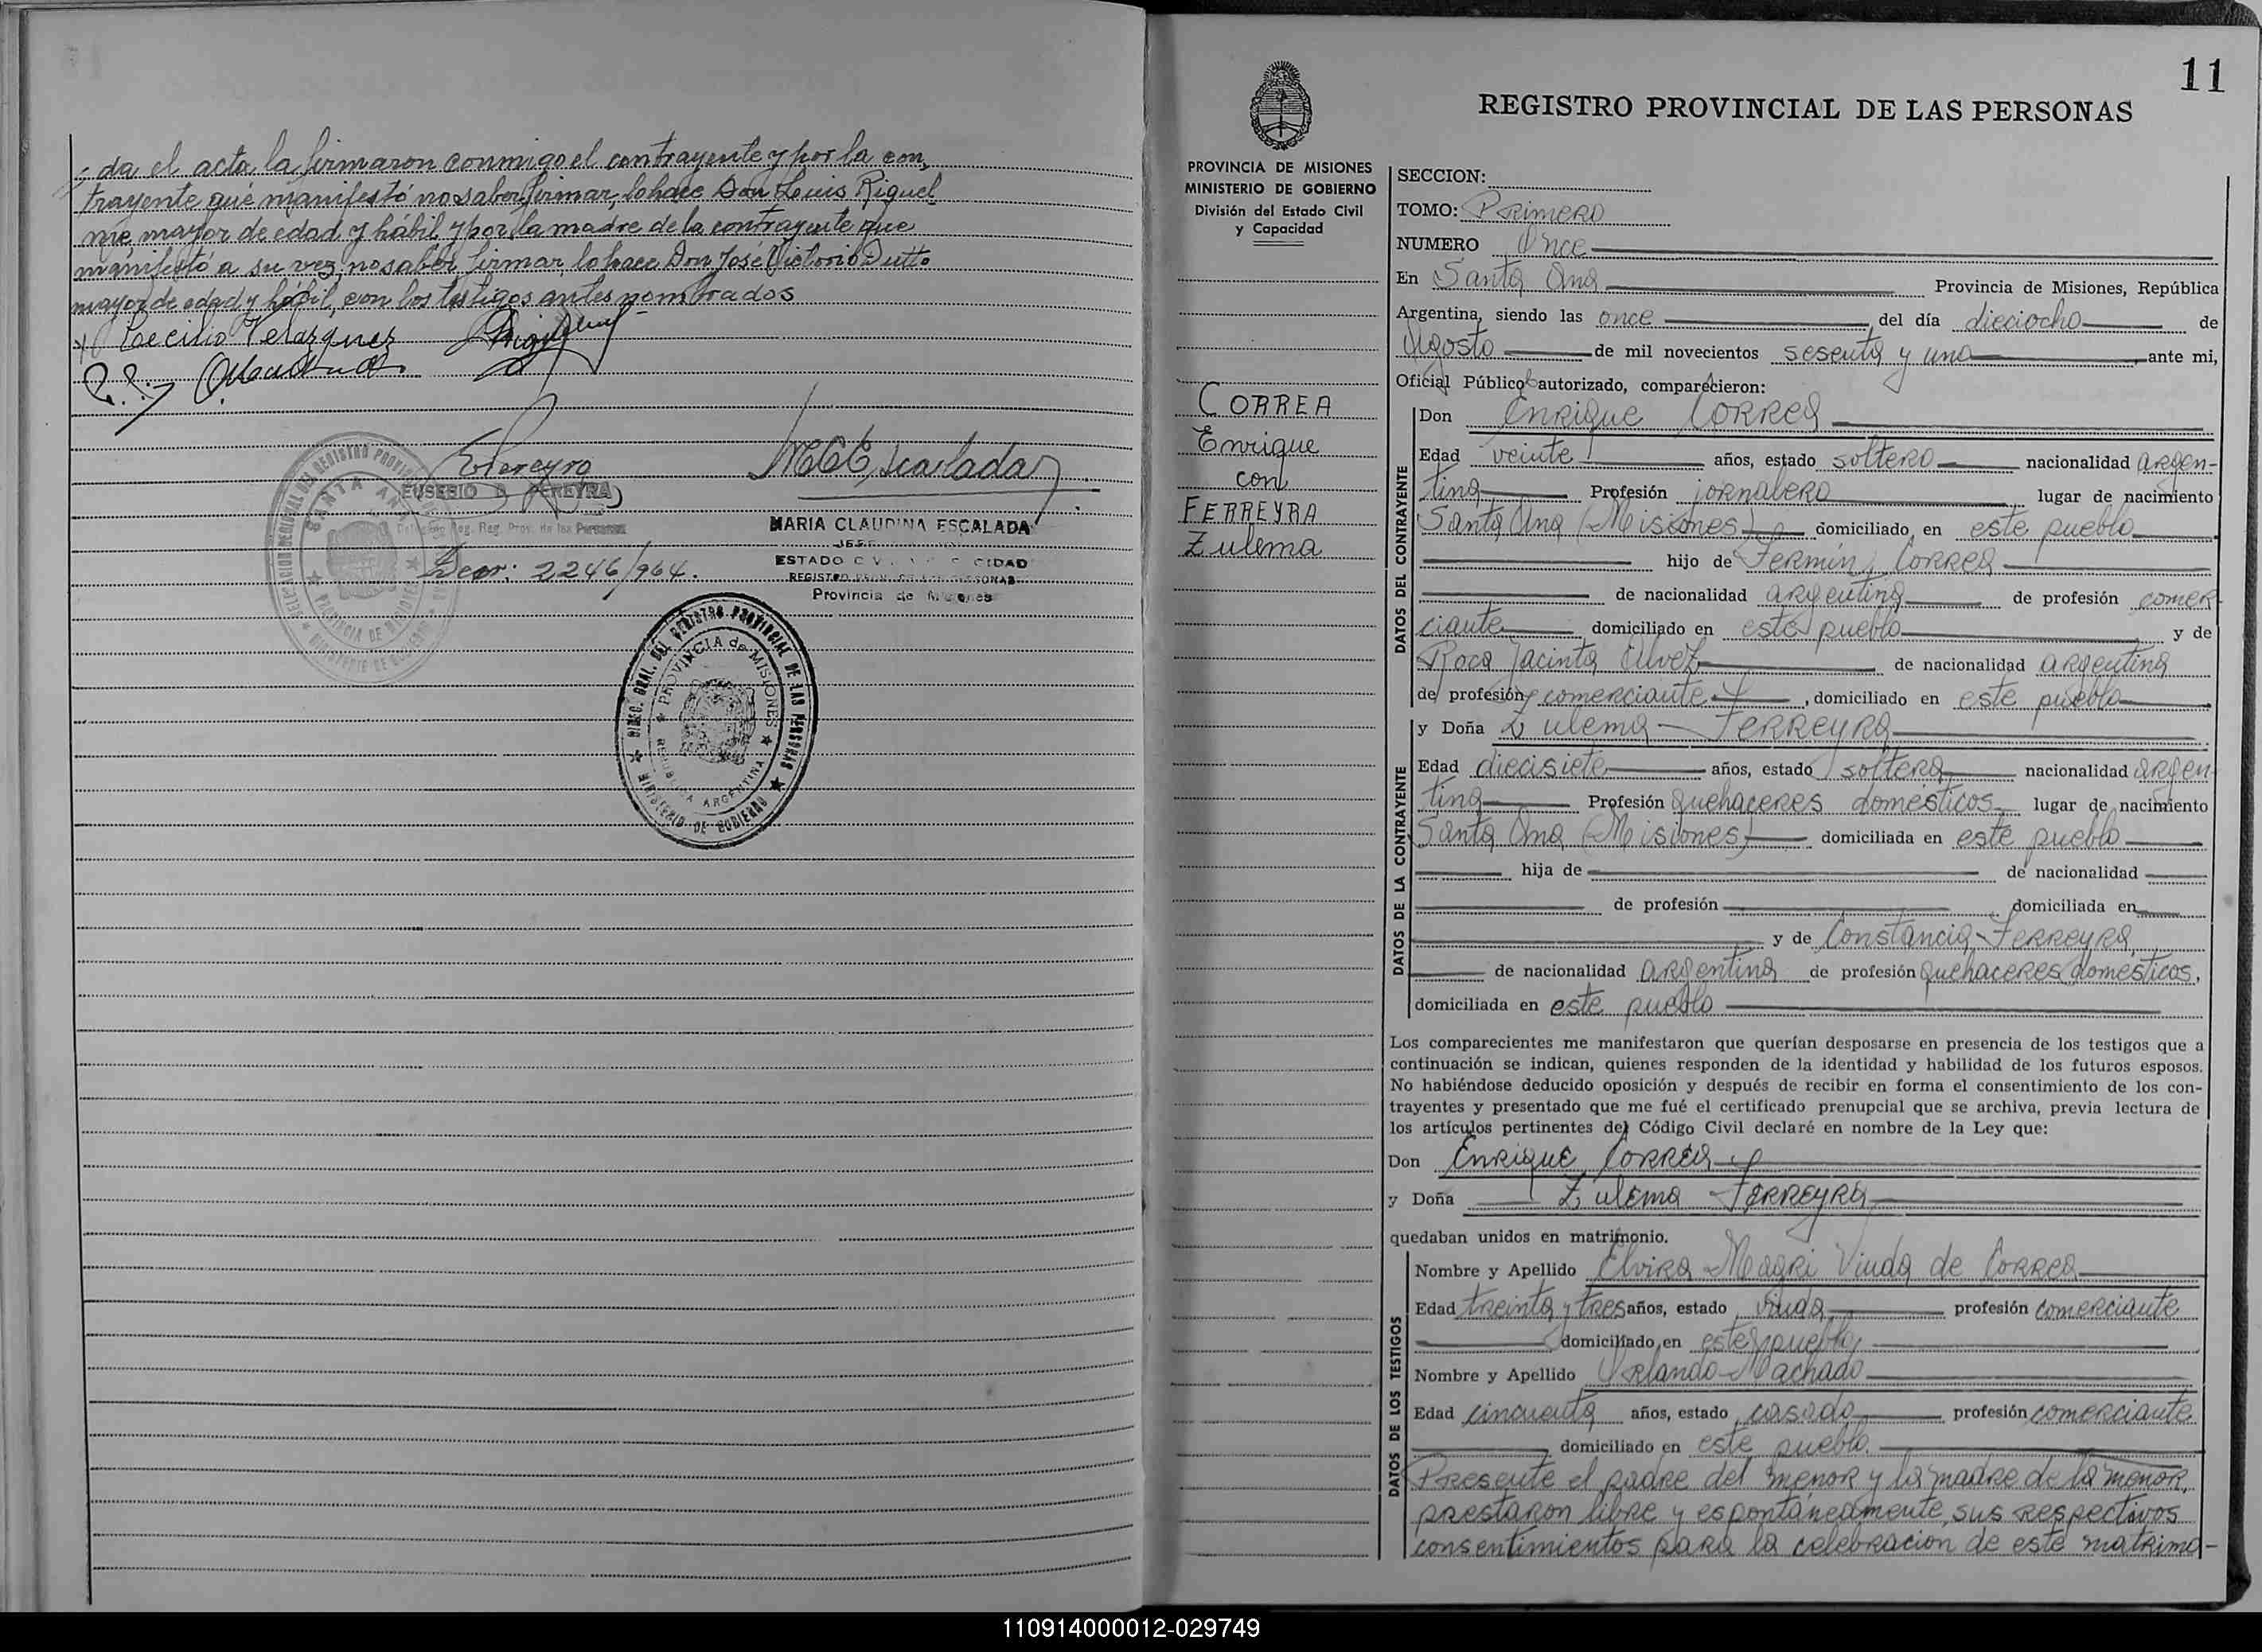 da el acta, la firmaron conmigo el contrayente y por la con,
trayente que manifestó no saber firmar, lo hace Don Luis Riquel
me mayor de edad y hábil y por la madre de la contrayente que
manifestó a su vez, no saber firmar, lo hace Don José Victorio Dutto
mayor de edad y hábil, con los testigos antes nombrados
Cecilio Velazquez
EPereyra
EUSEBIO PEREYRA
Reg. Prov. de las Personas
Decr: 2246/964.
MCEscalada
MARIA CLAUDINA ESCALADA
JEFE
ESTADO CIVIL Y CAPACIDAD
REGISTRO PROV. DE LAS PERSONAS
Provincia de Misiones
SANTA ANA
PROVINCIA DE MISIONES
MINISTERIO DE GOBIERNO
DIREC. GRAL. DEL REGISTRO PROVINCIAL DE LAS PERSONAS
PROVINCIA de MISIONES
REPUBLICA ARGENTINA
MINISTERIO DE GOBIERNO
11
REGISTRO PROVINCIAL DE LAS PERSONAS
PROVINCIA DE MISIONES
MINISTERIO DE GOBIERNO
División del Estado Civil
y Capacidad
CORREA
Enrique
con
FERREYRA
Zulema
SECCION:
TOMO: Primero
NUMERO Once
En Santa Ana Provincia de Misiones, República
Argentina, siendo las once del día dieciocho de
Agosto de mil novecientos sesenta y uno ante mi,
Oficial Público autorizado, comparecieron:
DATOS DEL CONTRAYENTE
Don Enrique Correa
Edad veinte años, estado soltero nacionalidad argen-
tina Profesión jornalero lugar de nacimiento
Santa Ana (Misiones) domiciliado en este pueblo
hijo de Fermín Correa
de nacionalidad argentina de profesión comer
ciante domiciliado en este pueblo y de
Roca Jacinta Alvez de nacionalidad argentina
de profesión comerciante, domiciliado en este pueblo
DATOS DE LA CONTRAYENTE
y Doña Zulema Ferreyra
Edad diecisiete años, estado soltera nacionalidad argen
tina Profesión quehaceres domésticos lugar de nacimiento
Santa Ana (Misiones) domiciliada en este pueblo
hija de de nacionalidad
de profesión domiciliada en
y de Constancia Ferreyra,
de nacionalidad argentina de profesión quehaceres domesticos,
domiciliada en este pueblo
Los comparecientes me manifestaron que querían desposarse en presencia de los testigos que a
continuación se indican, quienes responden de la identidad y habilidad de los futuros esposos.
No habiéndose deducido oposición y después de recibir en forma el consentimiento de los con-
trayentes y presentado que me fué el certificado prenupcial que se archiva, previa lectura de
los artículos pertinentes del Código Civil declaré en nombre de la Ley que:
Don Enrique Correa
y Doña Zulema Ferreyra
quedaban unidos en matrimonio.
DATOS DE LOS TESTIGOS
Nombre y Apellido Elvira Magri Viuda de Correa
Edad treinta y tres años, estado viuda profesión comerciante
domiciliado en este pueblo
Nombre y Apellido Orlando Machado
Edad cincuenta años, estado casado profesión comerciante
domiciliado en este pueblo.
Presente el padre del menor y la madre de la menor,
prestaron libre y espontáneamente, sus respectivos
consentimientos para la celebración de este matrimo-
110914000012-029749